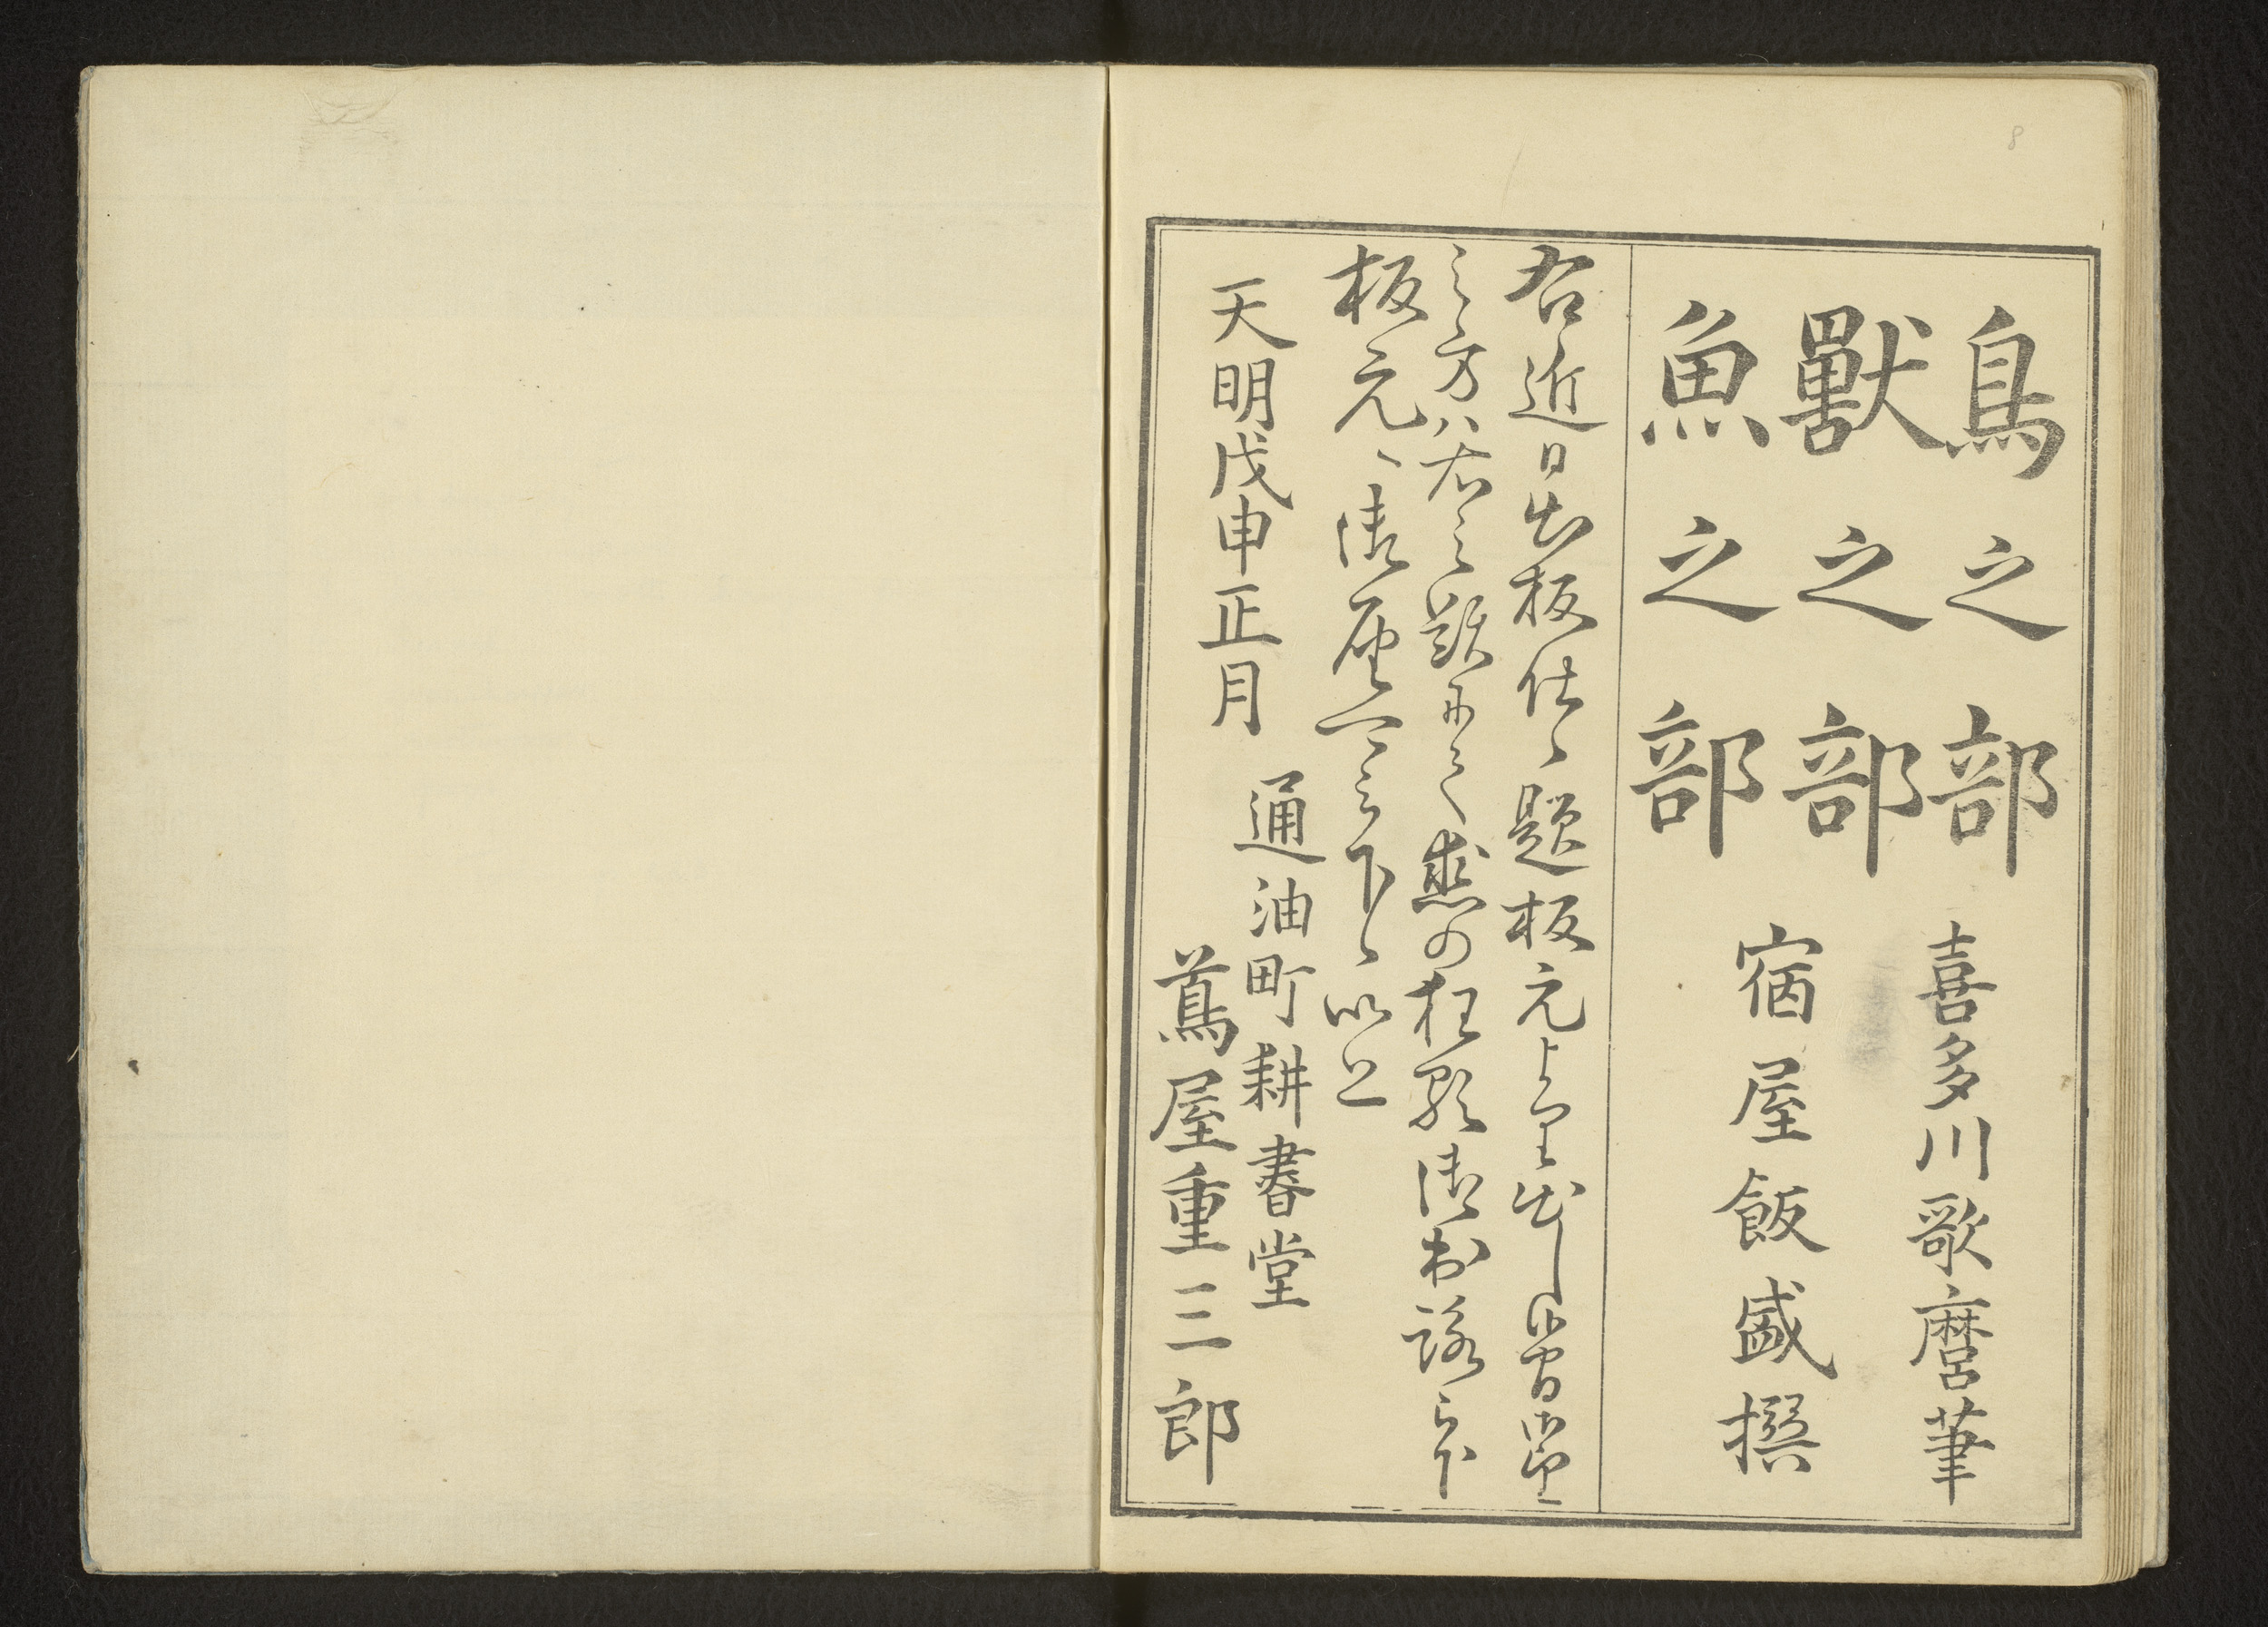 8
鳥之部
獸之部
魚之部
喜多川歌麿筆
宿屋飯盛撰
右近日出板仕候題板元より出し候間御望
之方ハ右之題にて恋の狂歌御出詠被下
板元へ御届可被下候以上
天明戊申正月
通油町耕書堂
蔦屋重三郎